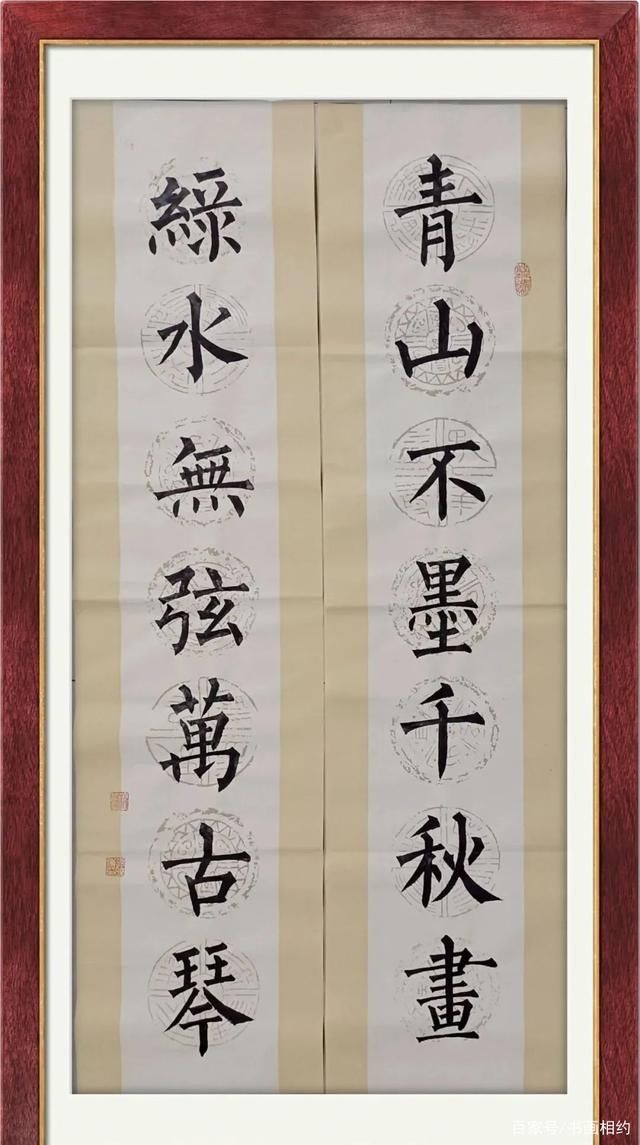 青山不墨千秋畫
綠水無弦萬古琴
百家号/书画相约